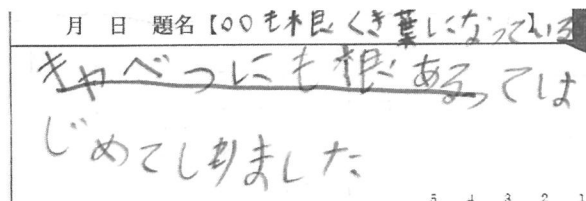 月 日 題名【〇〇も根くき葉になって】いる
キャベつにも根があるっては
じめてしりました
5 4 3 2 1